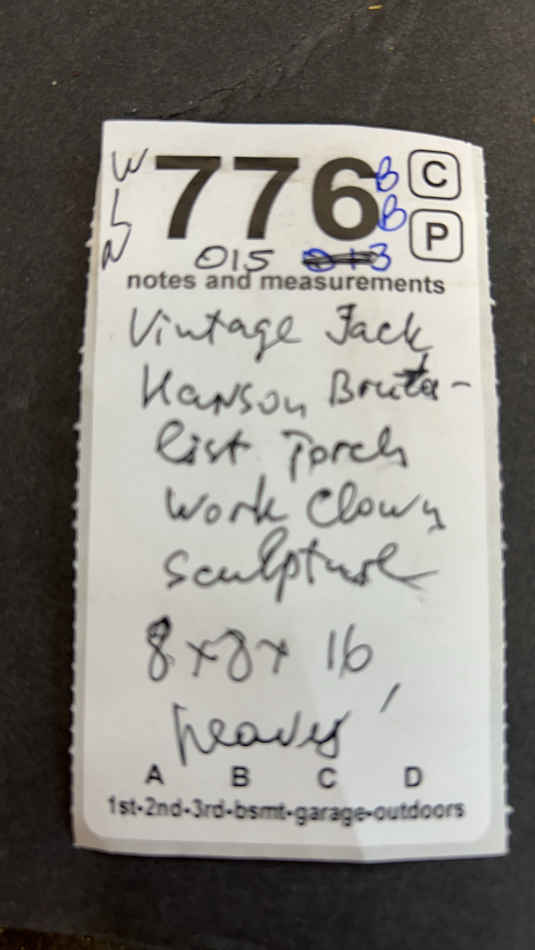 W 776 B C
L B P
N 015 013
notes and measurements
Vintage Jack
Hanson Bruta-
list Torch
Work Clown
Sculpture
8x8x 16
heavy!
A B C D
1st-2nd-3rd-bsmt-garage-outdoors